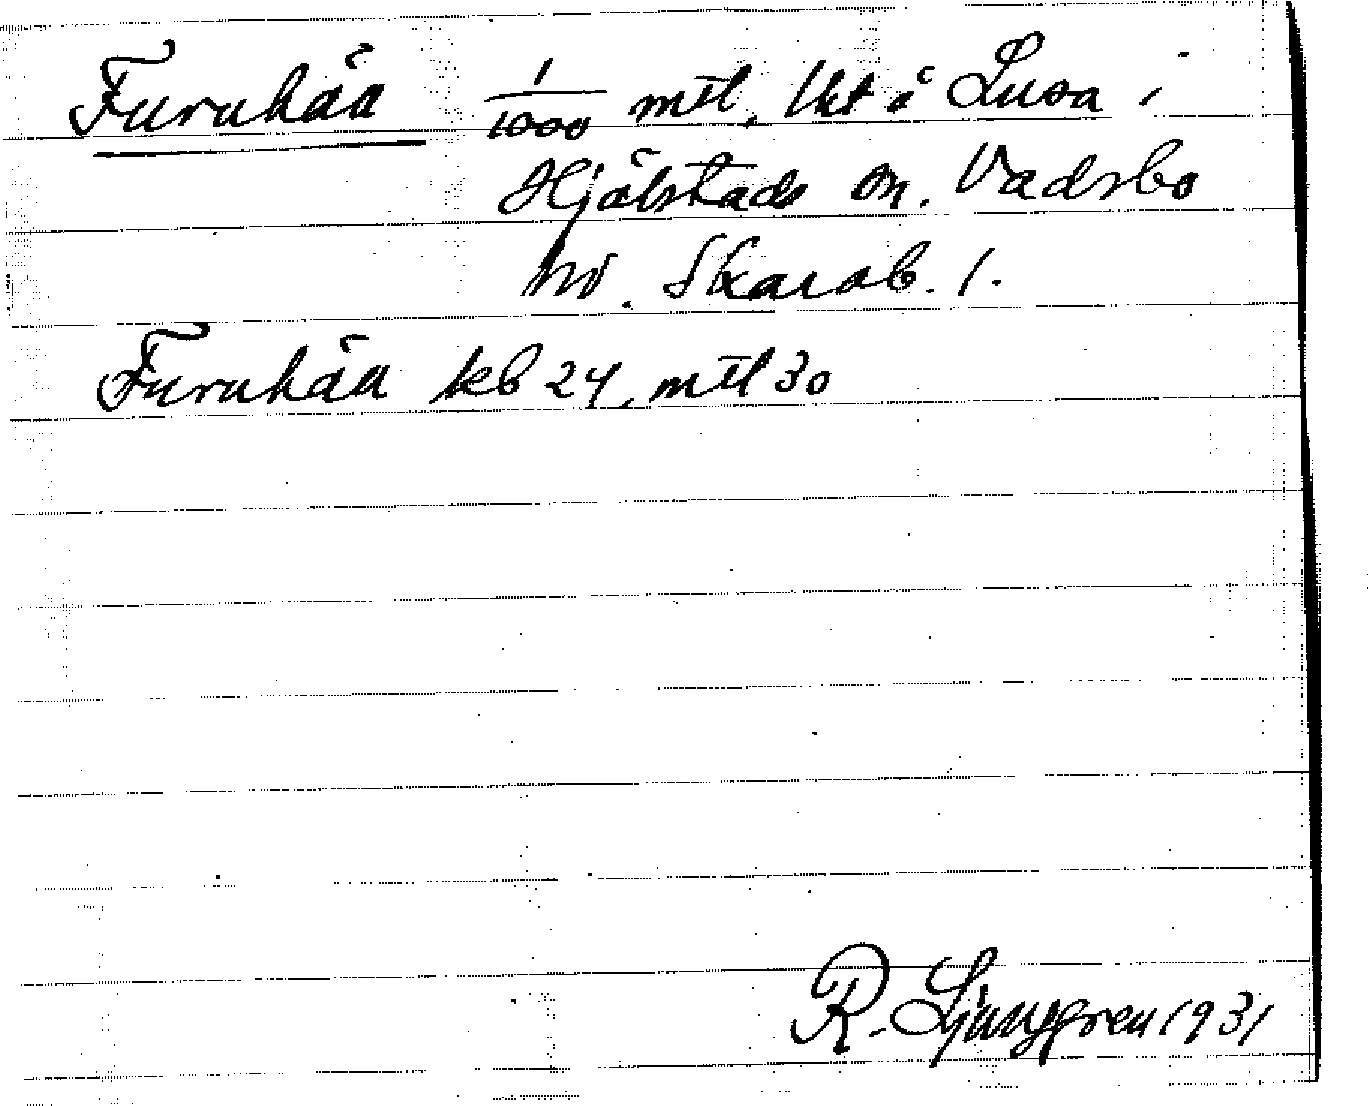 Furuhäll 1/1000 mtl. Utk å Lusa i
Hjälstads sn. Vadsbo
hd. Skarab. l.
Furuhäll kb 24, mtl 30
R. Ljunggren 1931